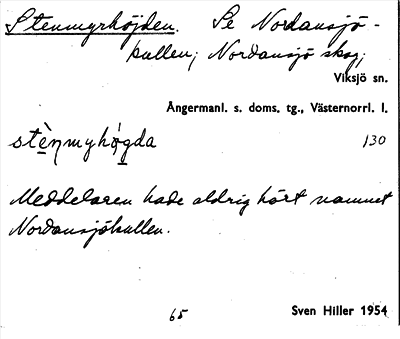 Stenmyrhöjden. Se Nordansjö-
kullen; Nordansjö skog;
Viksjö sn.
Ångermanl. s. doms. tg., Västernorrl. l.
stèn̥myhö́gda 130
Meddelaren hade aldrig hört namnet
Nordansjökullen.
65 Sven Hiller 1954